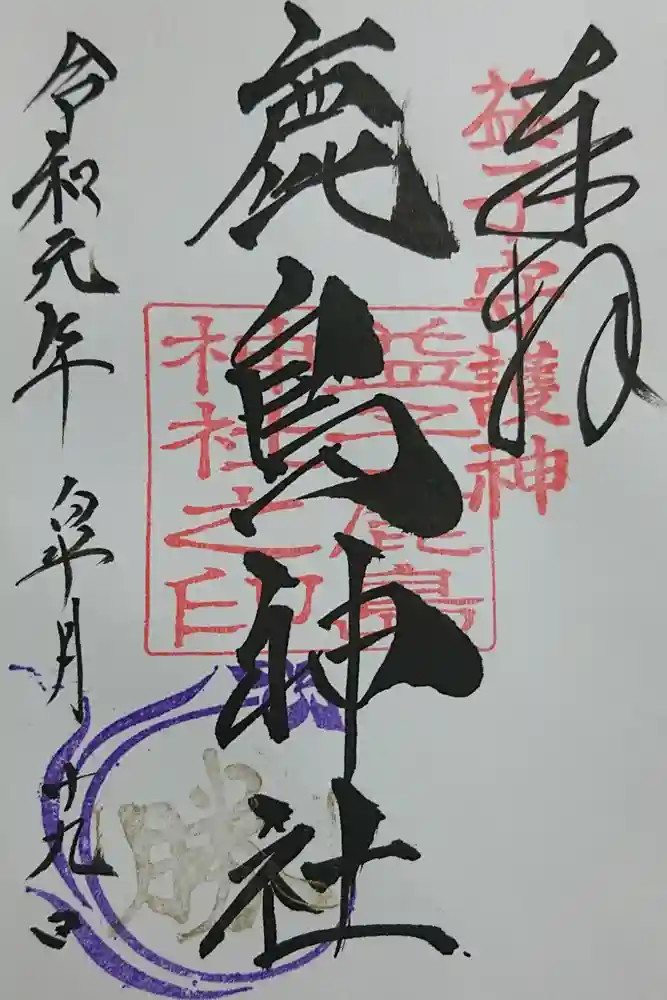 奉拝
益子守護神
鹿島神社
益子鹿島
神社之印
令和元年 皐月 十九日
勝